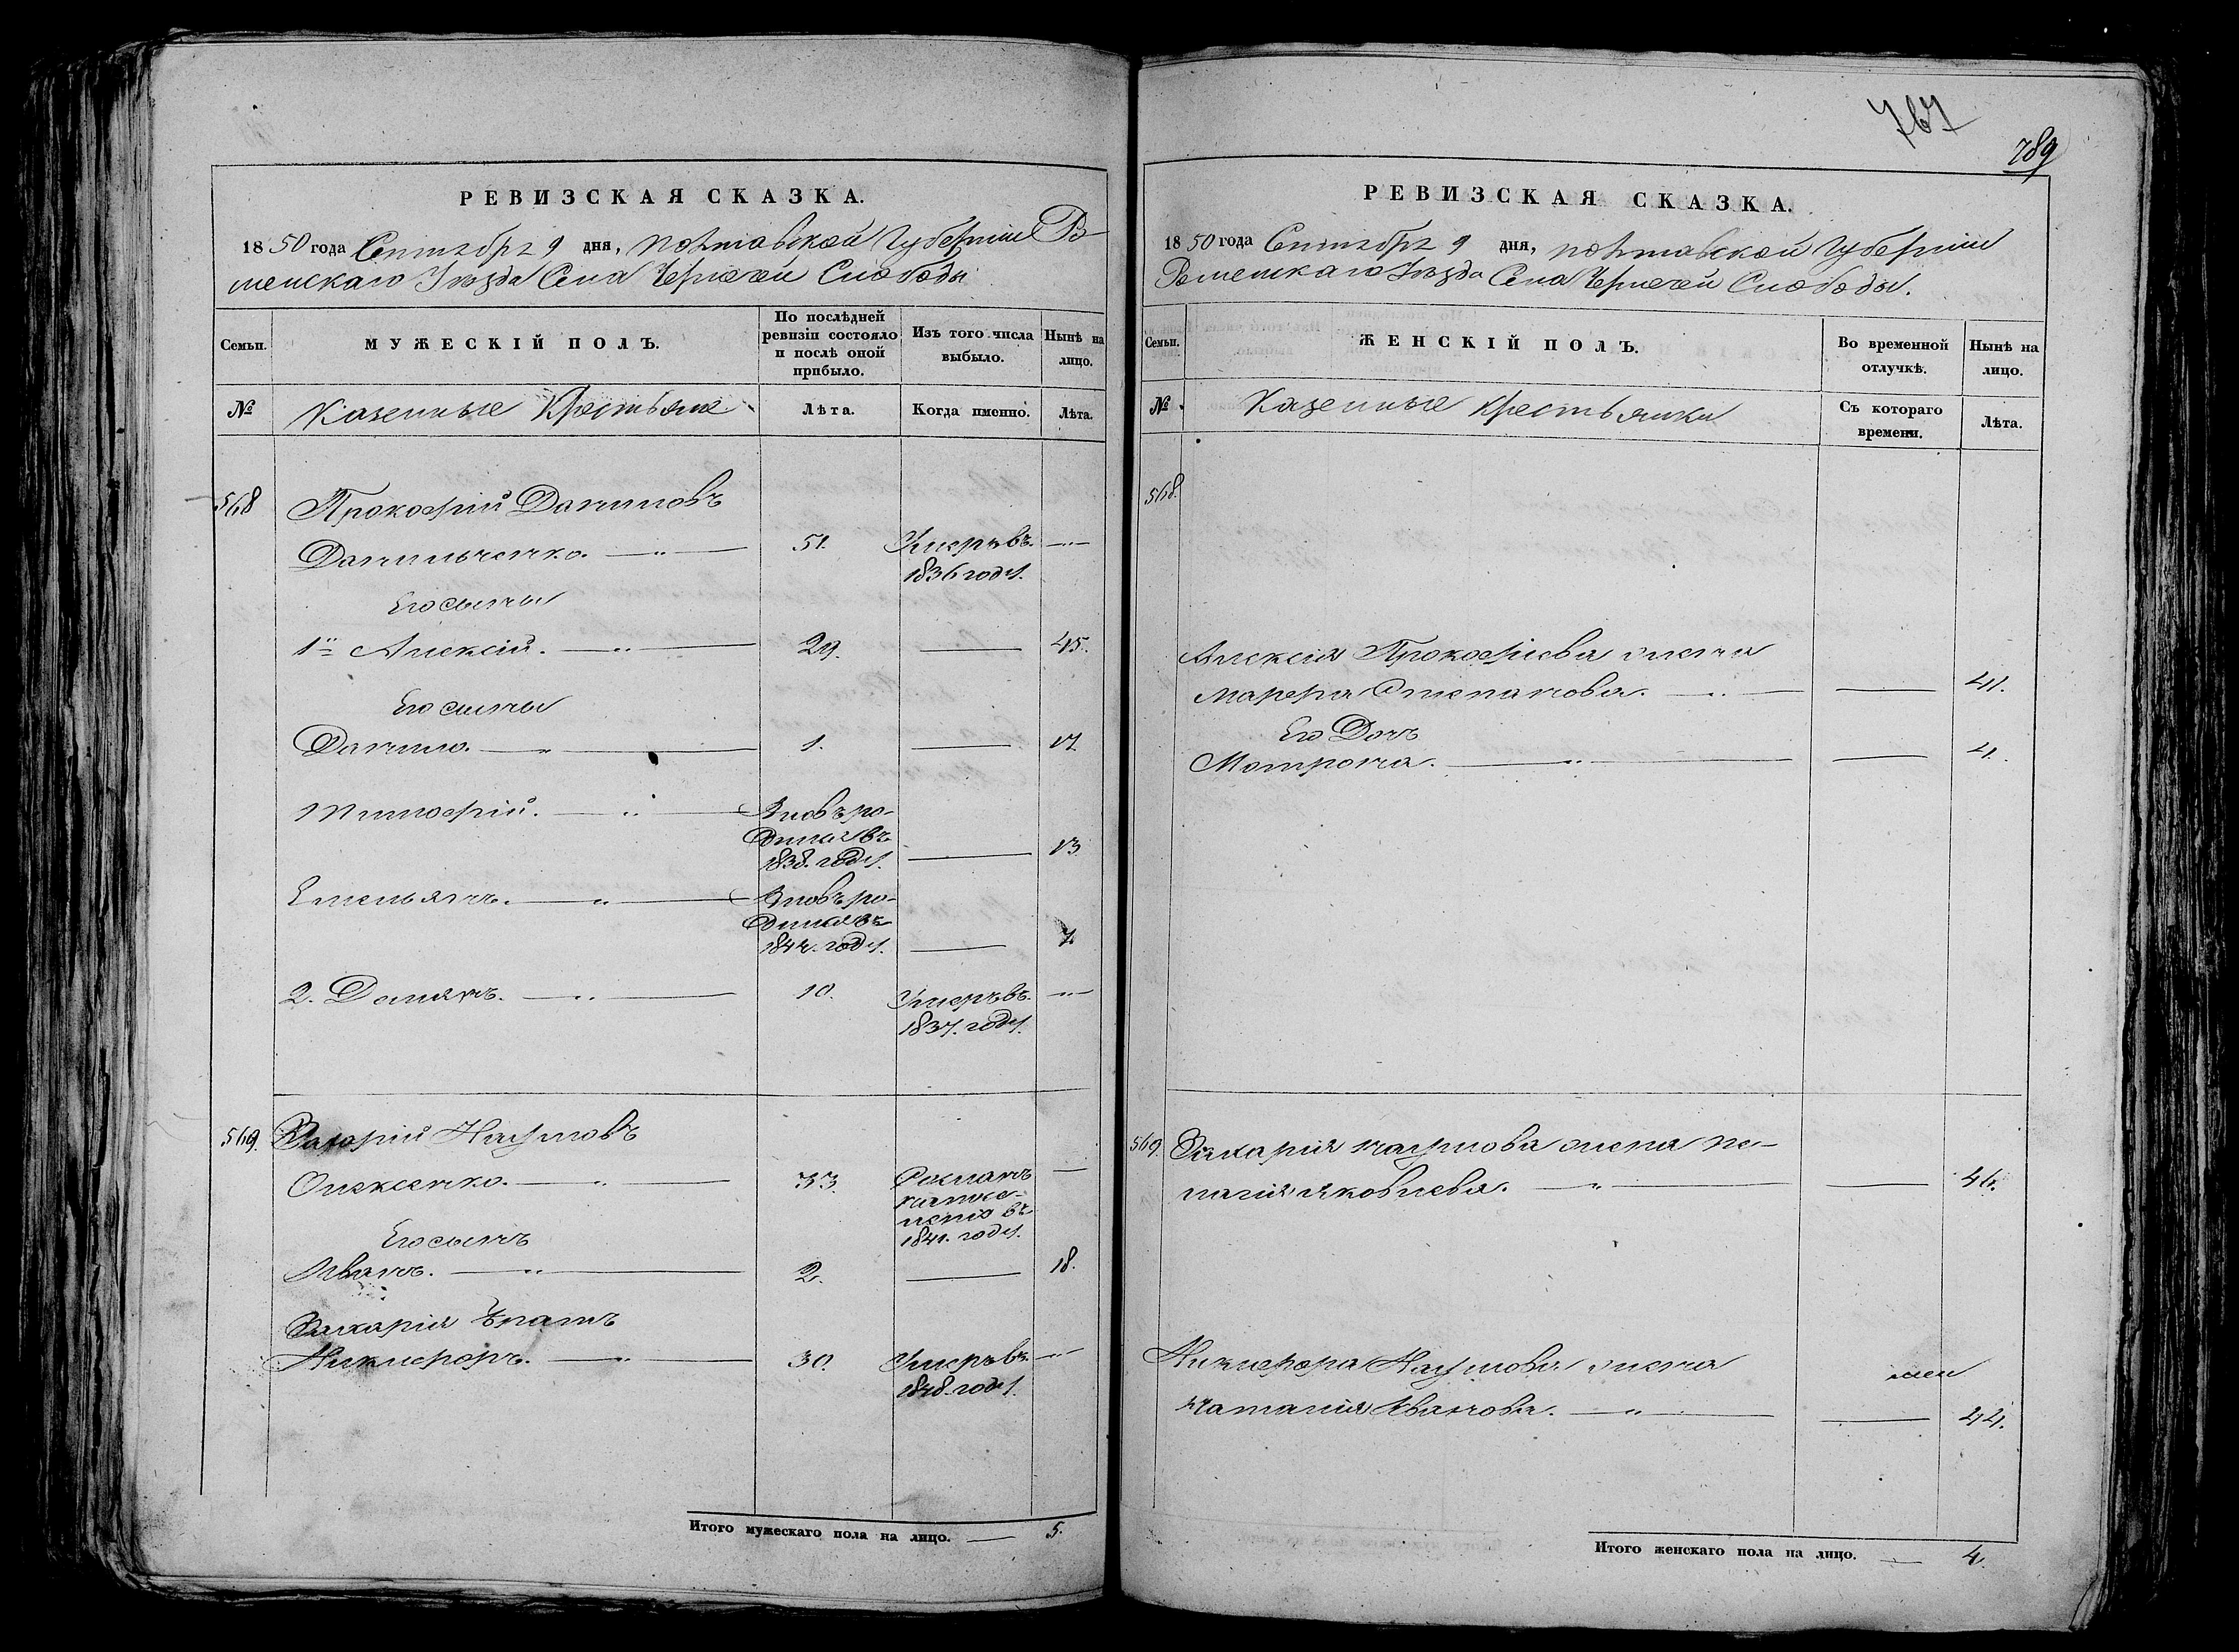 РЕВИЗСКАЯ СКАЗКА.
1850 года Сентября 9 дня, Полтавской Губернии Ро-
менскаго Уезда Села Чернечей Слободы
Семьи.
МУЖЕСКІЙ ПОЛЪ.
По послѣдней
ревизіи состояло
и послѣ оной
прибыло.
Изъ того числа
выбыло.
Нынѣ на
лицо.
№
Казенные Крестьяне
Лѣта.
Когда именно.
Лѣта.
568
Прокофій Даниловъ
Данильченко. 51. Умеръ въ
1836 году.
Его сыны
1й Алексій. 29. 45.
Его сыны
Данило. 1. 17.
Тимофій. Вновь ро-
дился въ
1838. году. 13
Емельянъ. Вновь ро-
дился въ
1844. году. 7
2. Демянъ. 10. Умеръ въ
1837. году.
569. Захарій Наумовъ
Олексенко. 33.
1841. году.
Его сынъ
Иванъ. 2. 18.
Захарія братъ
Никифоръ. 30. Умеръ въ
1848. году.
Итого мужескаго пола на лицо. 5.
767
789
РЕВИЗСКАЯ СКАЗКА.
1850 года Сентября 9 дня, Полтавской Губернии
Роменскаго Уезда Села Чернечей Слободы.
Семьи.
ЖЕНСКІЙ ПОЛЪ.
Во временной
отлучкѣ.
Нынѣ на
лицо.
№
Казенные Крестьянки
Съ котораго
времени.
Лѣта.
568.
Алексія Прокофіева жена
Марфа Степанова. 41.
Его Дочь
Мотрона. 4.
569. Захарія Наумова жена Пе-
лагія Яковлева. 46.
Никифора Наумова жена
Наталия Иванова. 44.
Итого женскаго пола на лицо. 4.